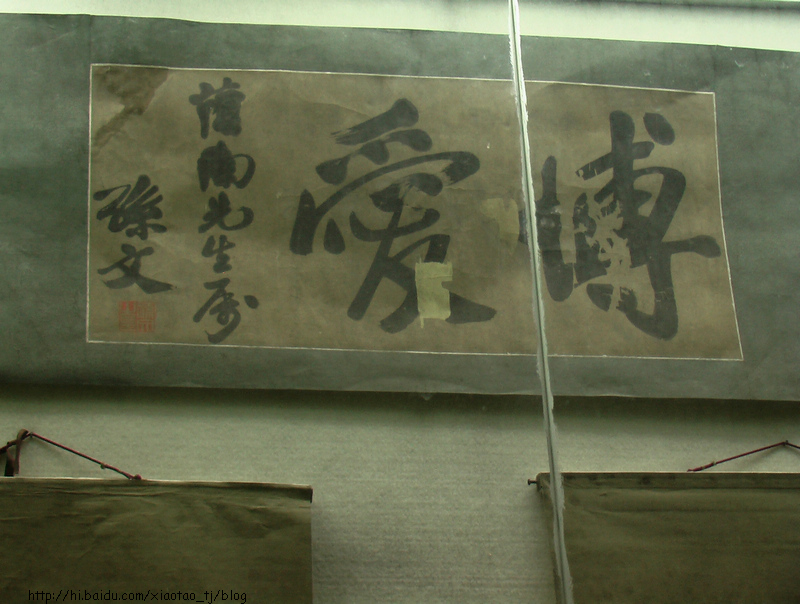 博愛
先生屬
孫文
http://hi.baidu.com/xiaotao_tj/blog